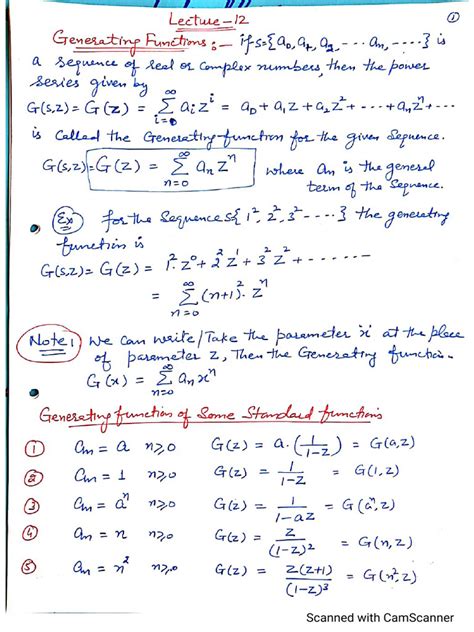 Lecture-12
①
Generating Functions:- if s={a₀, a₁, a₂, --- aₙ, ----} is
a sequence of real or complex numbers, then the power
series given by
G(s,z)= G(z) = ∞∑i=0 aᵢ zⁱ = a₀ + a₁z + a₂z² + --- + aₙzⁿ + ---
is called the Generating function for the given sequence.
G(s,z)= G(z) = ∞∑n=0 aₙ zⁿ where aₙ is the general
term of the sequence.
Ex for the sequence s{ 1², 2², 3² ----} the generating
function is
G(s,z)= G(z) = 1²·z⁰ + 2² z¹ + 3² z² + ------
= ∞∑n=0 (n+1)²· zⁿ
Note: We can write/Take the parameter 'x' at the place
of parameter z, Then the Generating function.
G(x) = ∞∑n=0 aₙxⁿ
Generating function of Some Standard functions
① aₙ = a n≥0 G(z) = a·(1/(1-z)) = G(a,z)
② aₙ = 1 n≥0 G(z) = 1/(1-z) = G(1,z)
③ aₙ = aⁿ n≥0 G(z) = 1/(1-az) = G(aⁿ,z)
④ aₙ = n n≥0 G(z) = z/(1-z)² = G(n,z)
⑤ aₙ = n² n≥0 G(z) = z(z+1)/(1-z)³ = G(n²,z)
Scanned with CamScanner